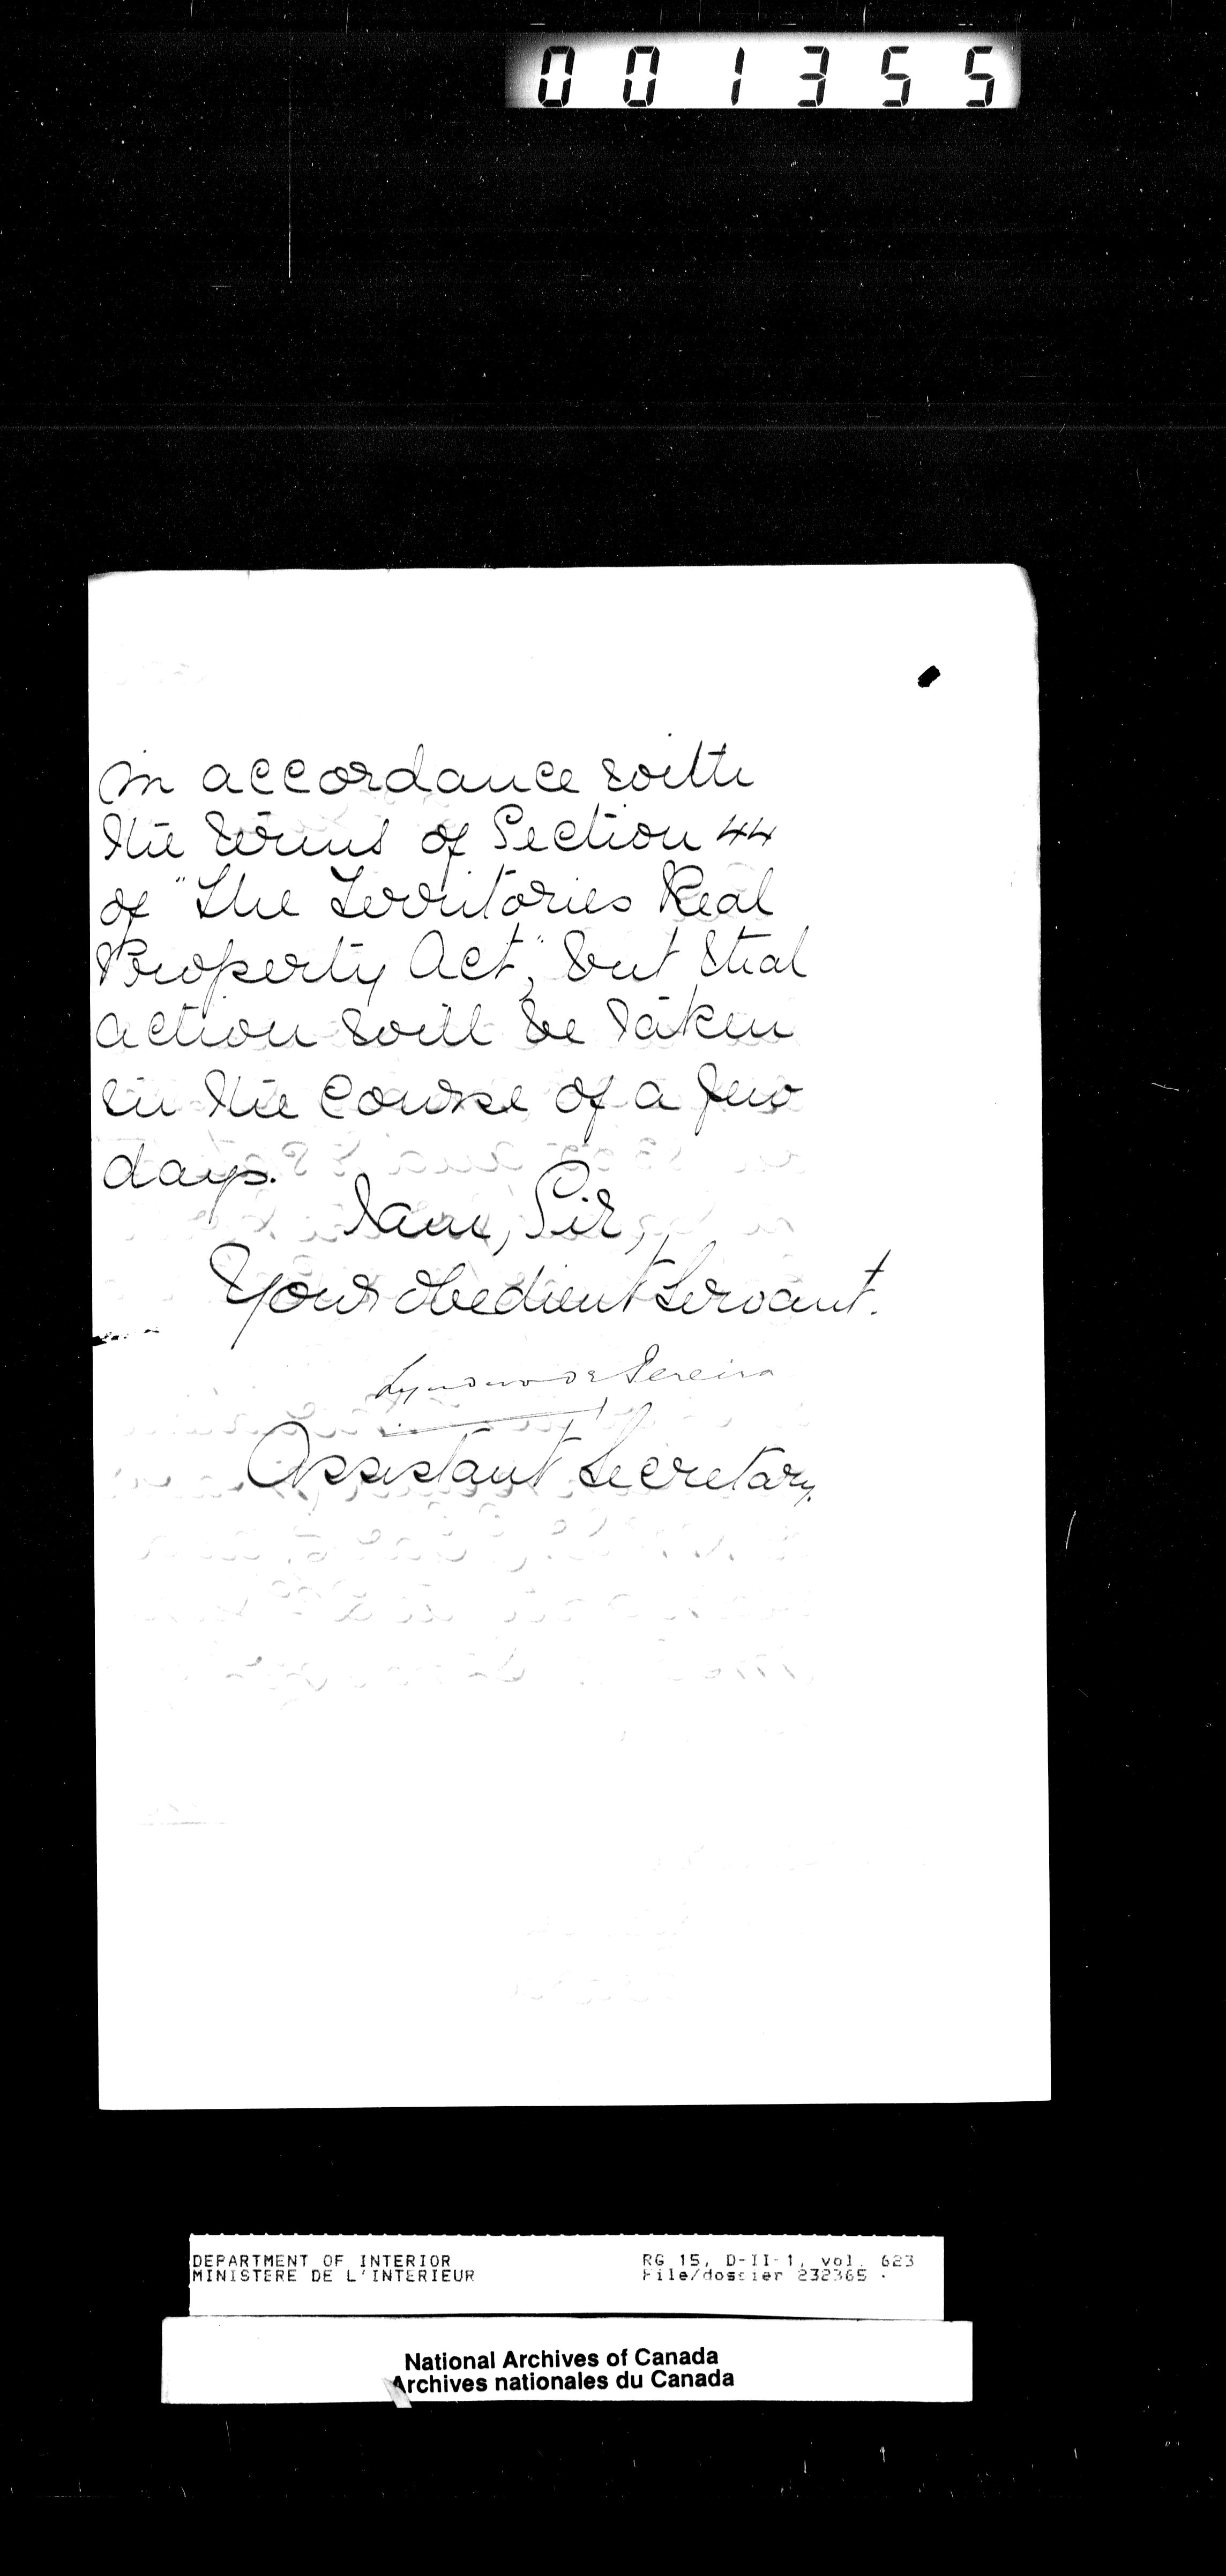 001355
in accordance with
the terms of Section 44
of "The Territories Real
Property Act", but that
action will be taken
in the course of a few
days.
I am, Sir,
Your obedient Servant.
Lyndwode Pereira
Assistant Secretary.
DEPARTMENT OF INTERIOR
MINISTERE DE L'INTERIEUR
RG 15, D-II-1, vol. 623
File/dossier 232365
National Archives of Canada
Archives nationales du Canada